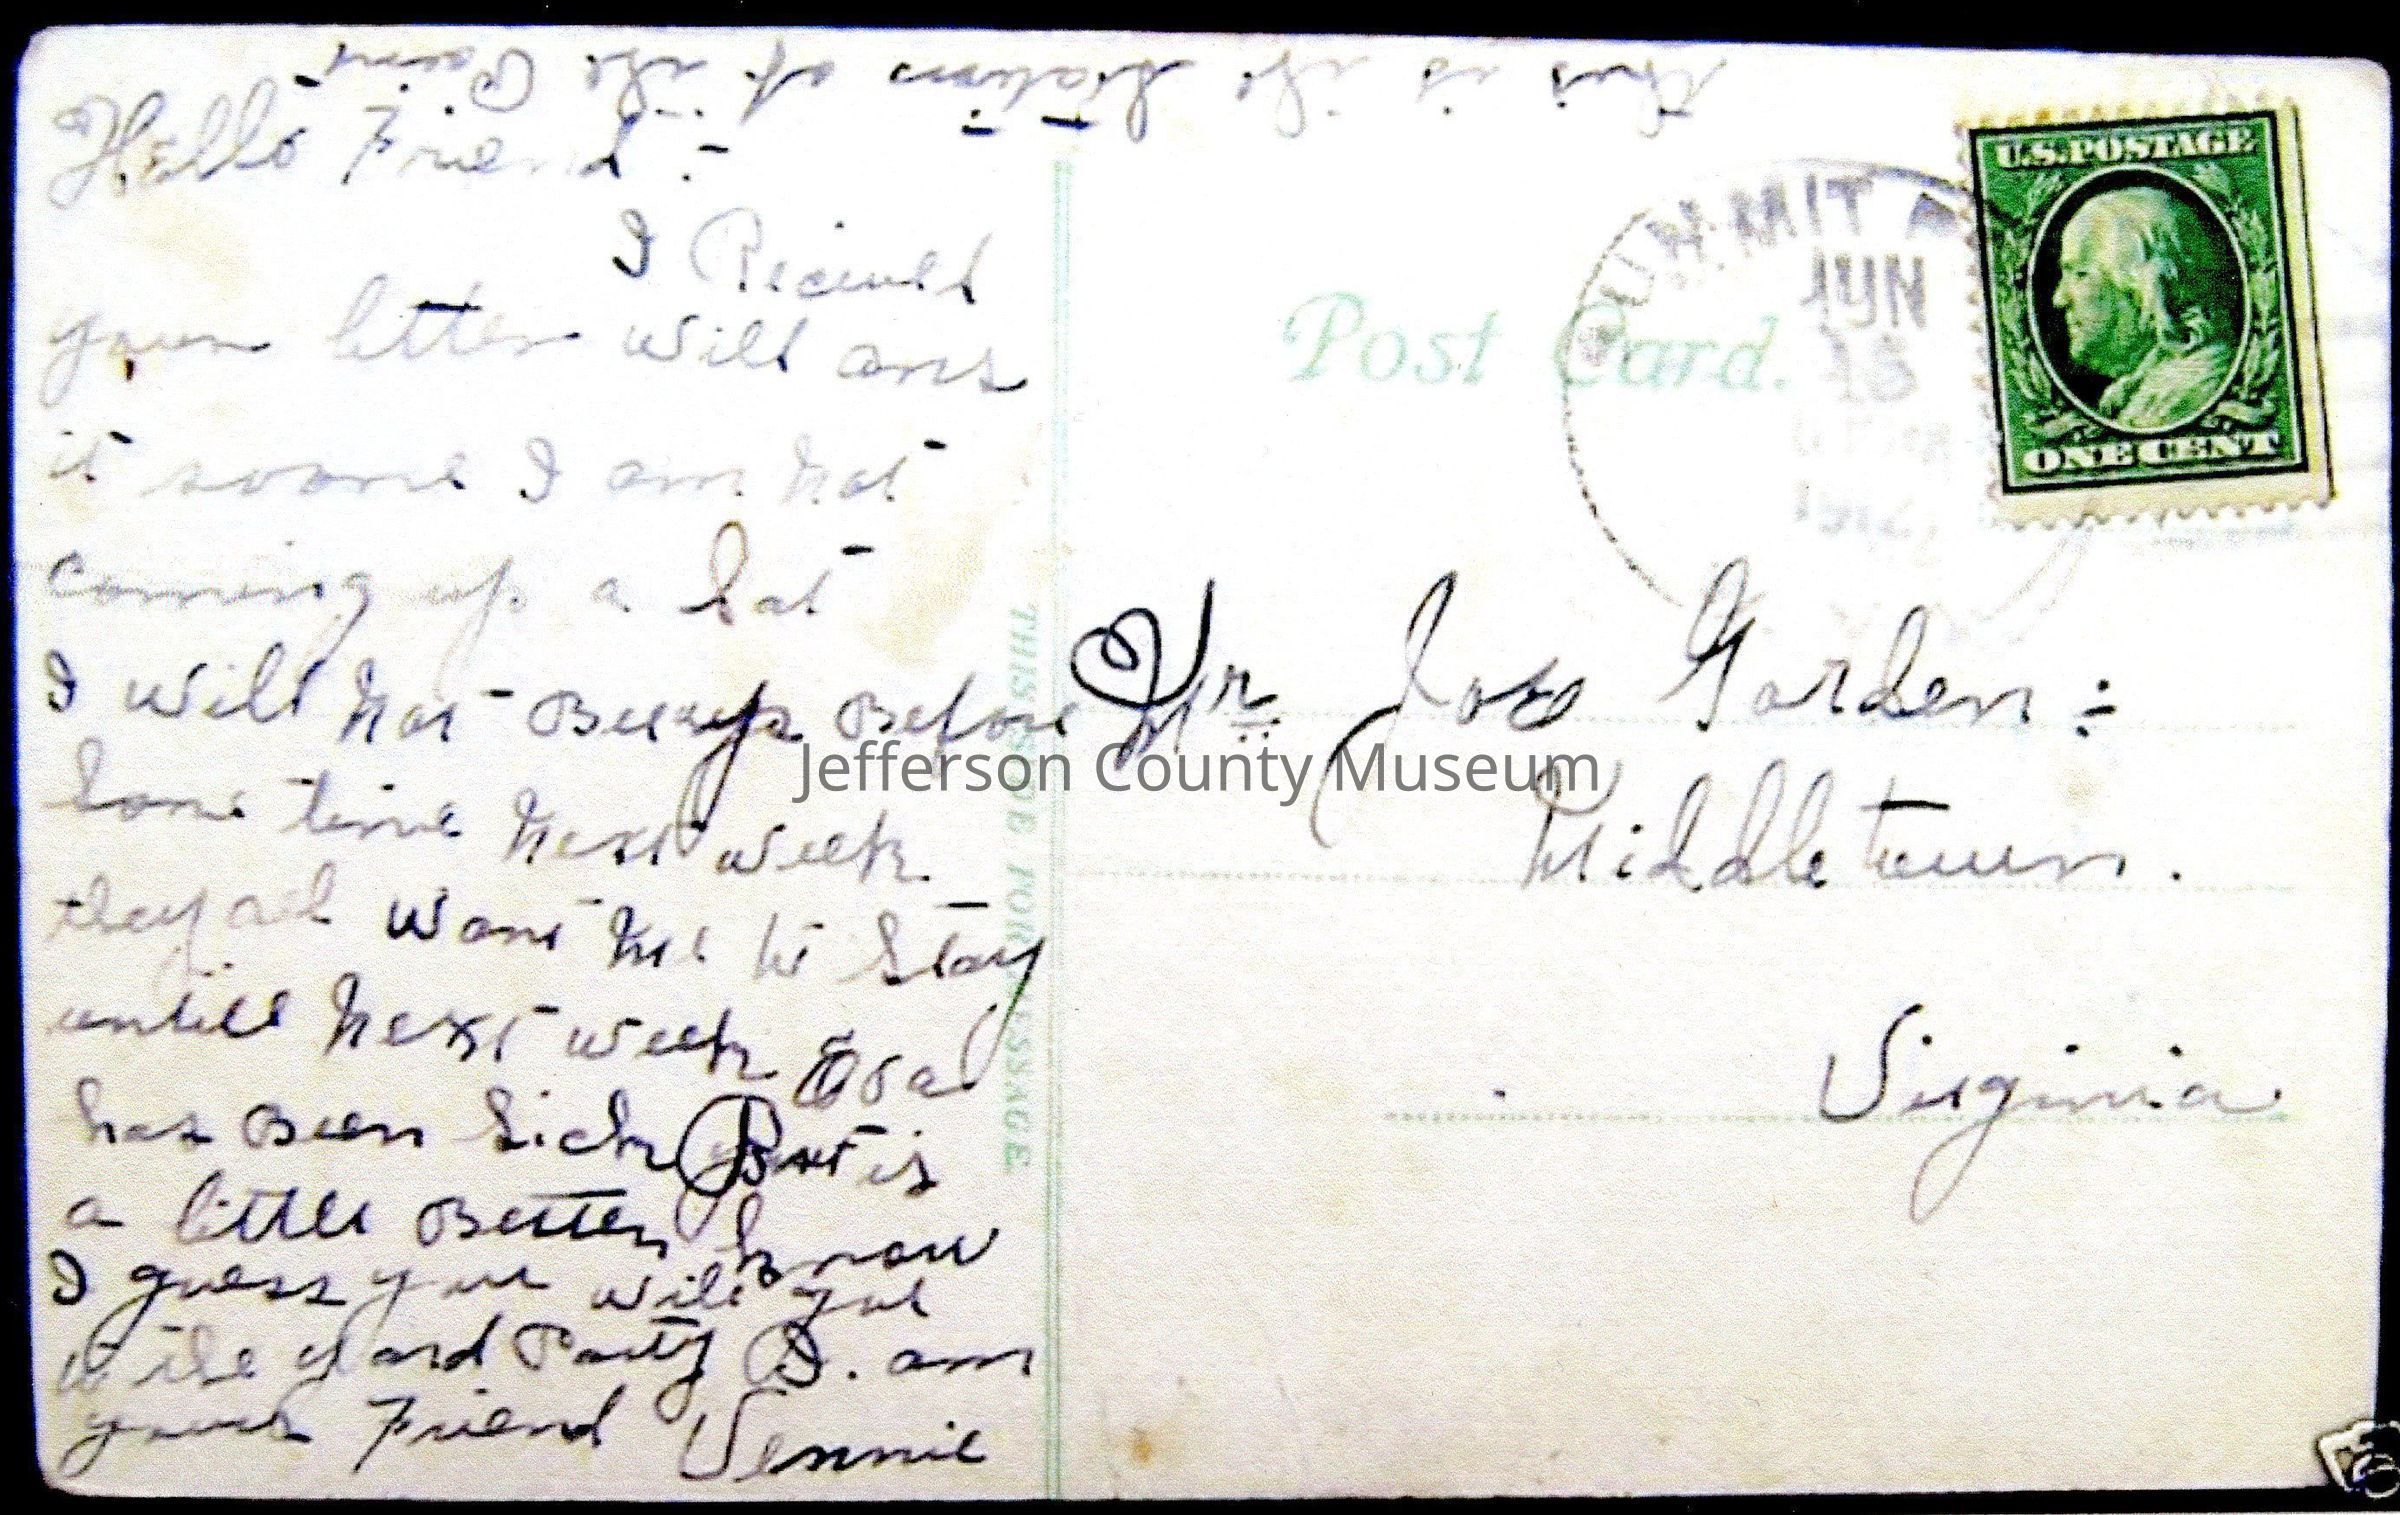 this is the Station at the Point
Hello Friend :-
I Recieved
your letter will ans
it soone I am not
coming up a Sat
I will not Be up Before
Some time Next week
they all want Me to Stay
untill Next week
has Been Sick But is
a little Better know
I guess you will get
to the yard Party I. am
your Friend Vennie
THIS SIDE FOR MESSAGE
Post Card.
SUMMIT
JUN
15
1912
U.S. POSTAGE
ONE CENT
Mr. Joe Garden :-
Middletown.
Virginia
Jefferson County Museum